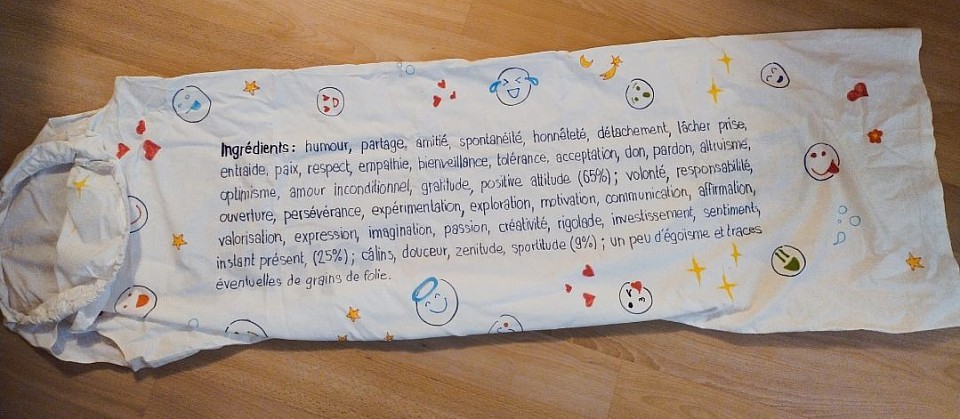 Ingrédients : humour, partage, amitié, spontanéité, honnêteté, détachement, lâcher prise,
entraide, paix, respect, empathie, bienveillance, tolérance, acceptation, don, pardon, altruisme,
optimisme, amour inconditionnel, gratitude, positive attitude (65%) ; volonté, responsabilité,
ouverture, persévérance, expérimentation, exploration, motivation, communication, affirmation,
valorisation, expression, imagination, passion, créativité, rigolade, investissement, sentiments,
instant présent, (25%) ; câlins, douceur, zenitude, sportitude (9%) ; un peu d'égoïsme et traces
éventuelles de grains de folie.